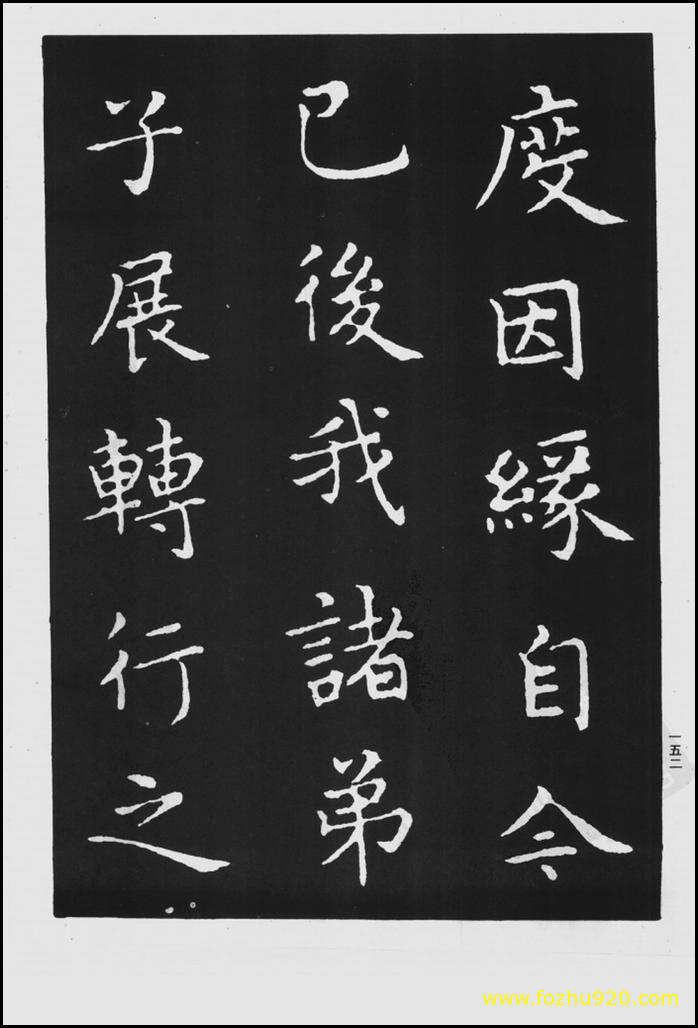 度因緣自今
已後我諸弟
子展轉行之
一五二
www.fozhu920.com